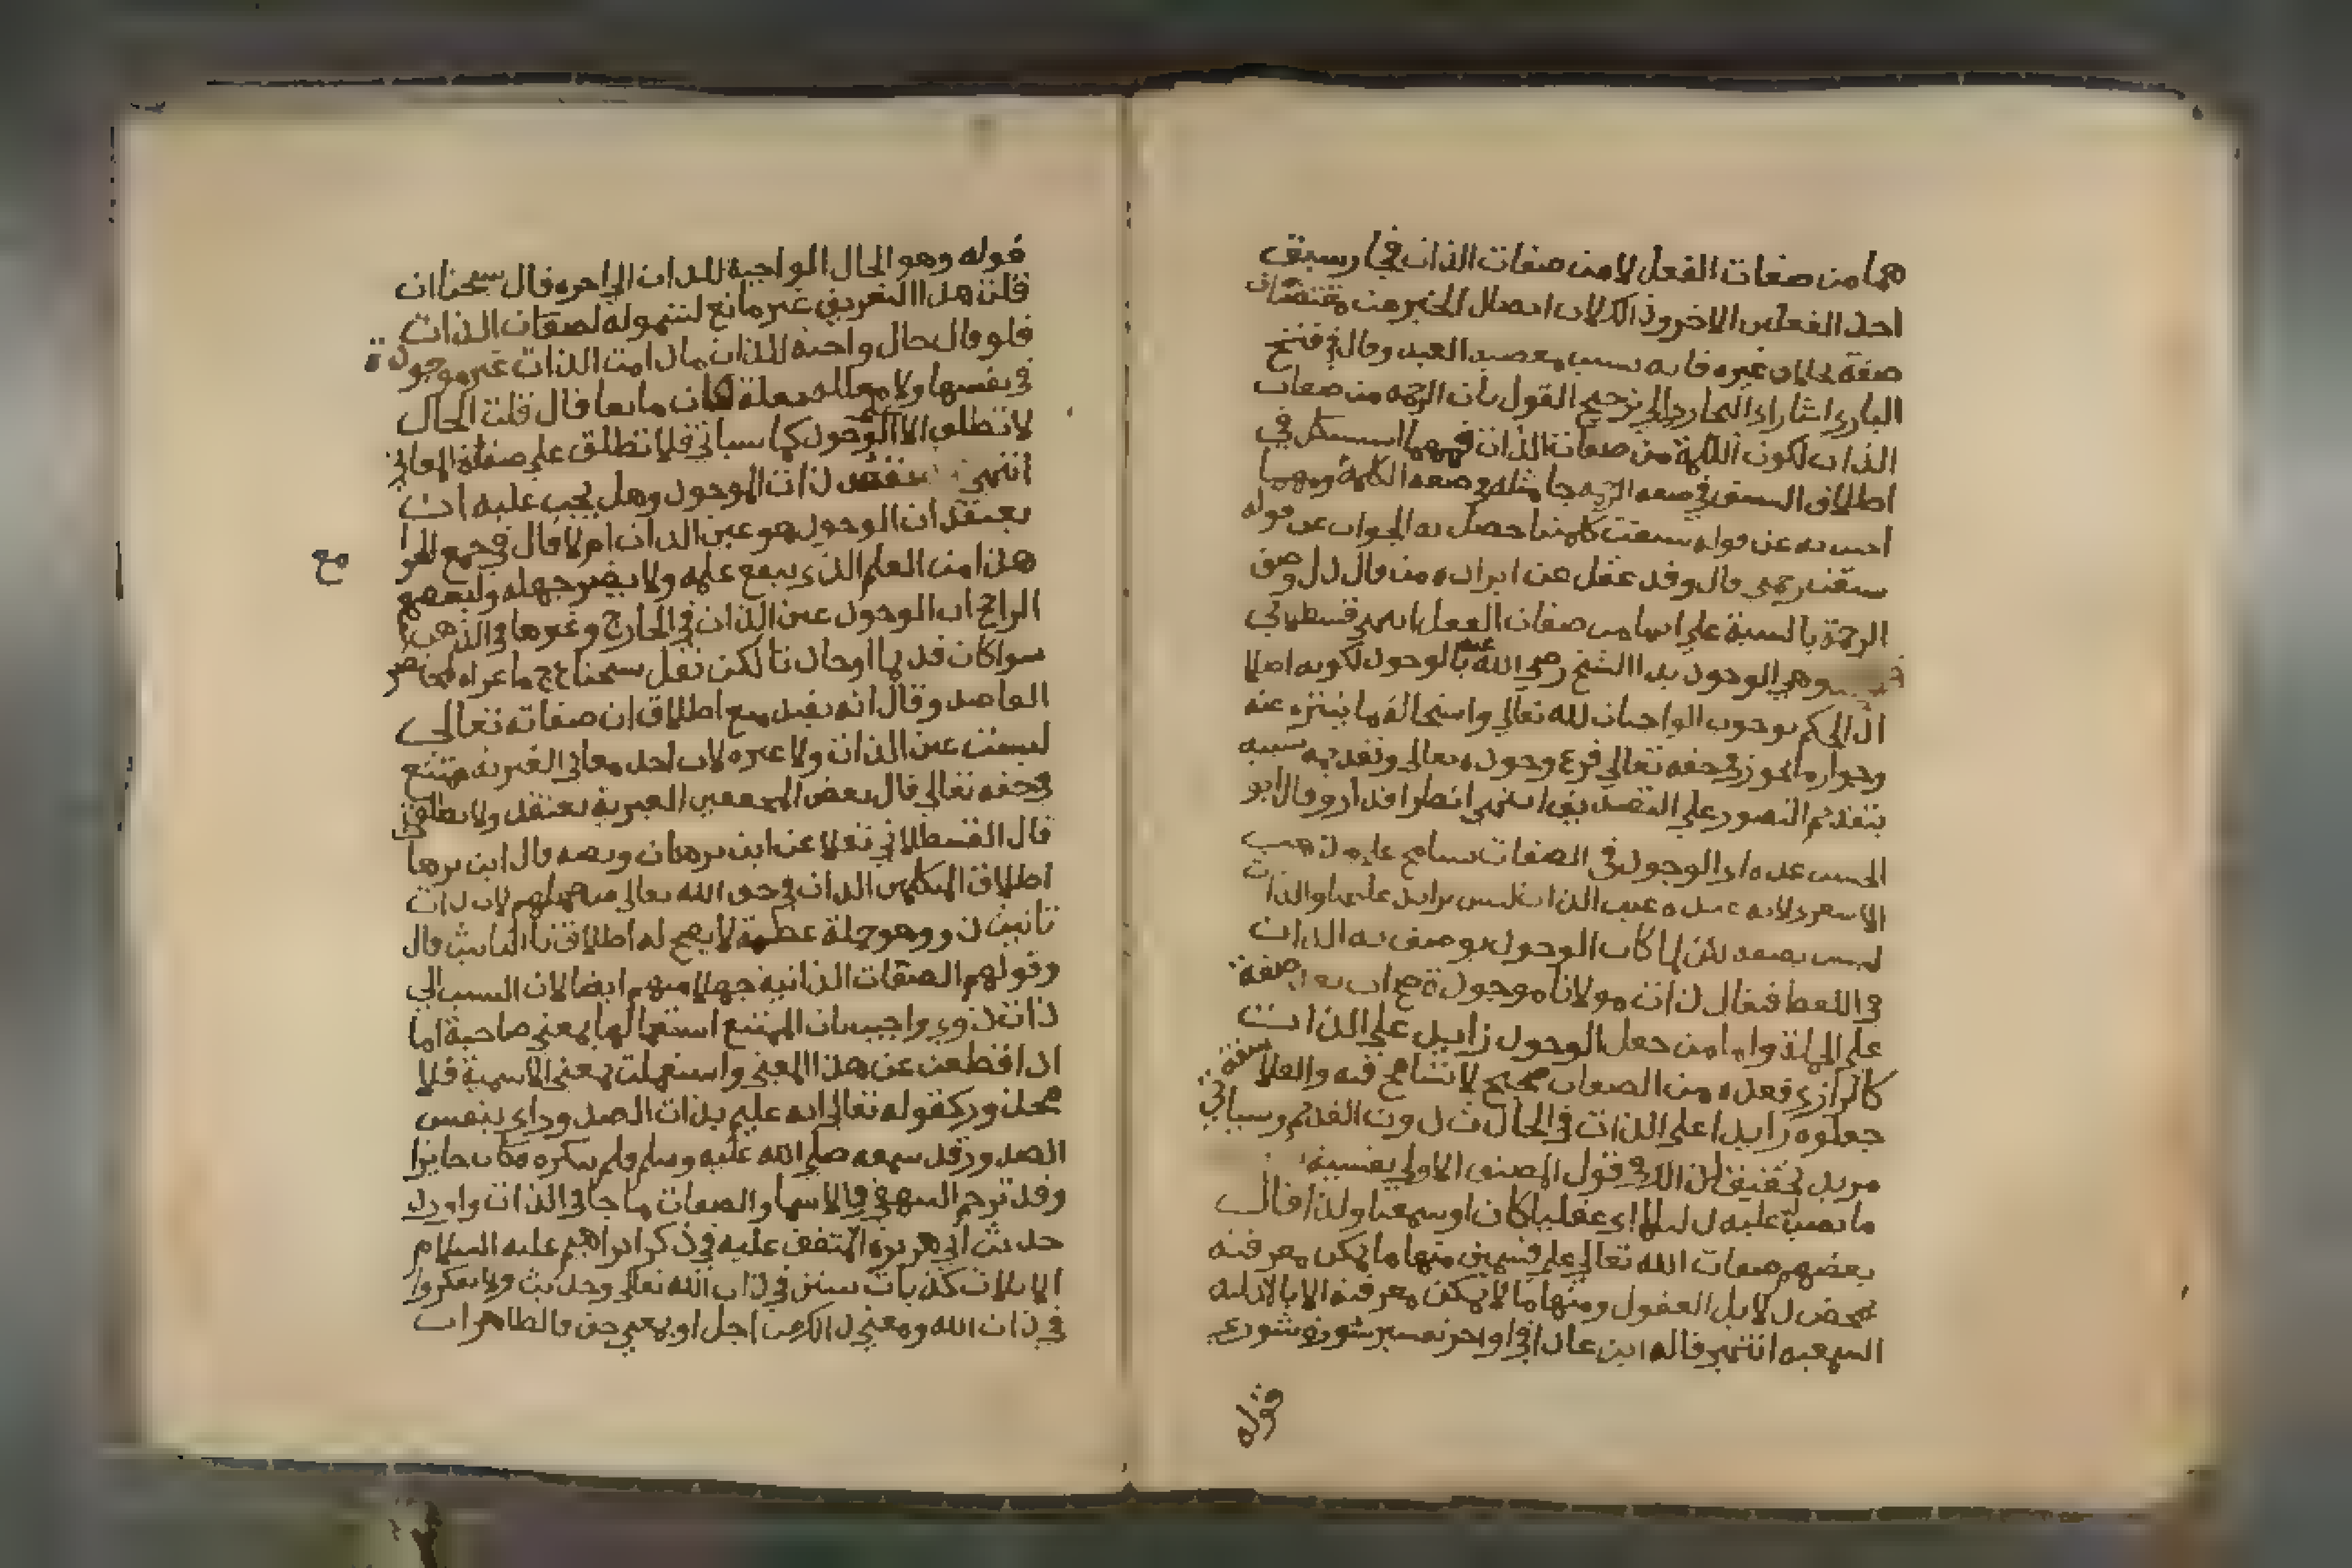 هما من صفات الفعل لا من صفات الذات فجاز سبق
احد الفعلين الاخر وذا لكلان ايصال الخير من مقتضيات
صفة بخلاف غيره فانه بسبب معصية العبد وقال في فتح
الباري اشار اذ البخاري الى ترجيح القول بان الرحمة من صفات
الذات لكون الكلمة من صفات الذات فمهما استشكل في
اطلاق السبق في صفة الرحمة جا مثله في صفة الكلمة ومهما
اجيب به عن قوله سبقت كلمتنا حصل به الجواب عن قوله
سبقت رحمتي قال وقد غفل عن ايراده من قال دل وصف
الرحمة بالسبق على انها من صفات الفعل انتهى قسطلاني
وهي الوجود بدا الشيخ رضي الله عنه بالوجود لكونه اصلا
اذ الحكم بوجوب الواجبات لله تعالى واستحالة ما يتنزه عنه
وجواز ما يجوز في حقه تعالى فرع وجوده تعالى وتقديمه شبيه
بتقديم التصور على التصديق انتهى انظر اقدار وقال ابو
الحسن عده اذ الوجود في الصفات تسامح على مذهب
الاشعري لانه عنده عين الذات ليس بزايد عليها والذات
ليس بصفة لكن لما كان الوجود يوصف به الذات
في اللفظ فيقال ذات مولانا موجودة صح ان يعد صفة
على الجملة واما من جعل الوجود زايد على الذات
كالرازي فعده من الصفات صحيح لا تسامح فيه والفلاسفة
جعلوه زايدا على الذات في الحادث دون القديم وسياتي
مزيد تحقيق لذلك في قول المصنف الاولى نفسية
ما نصب عليه دليلا اي عقليا كان او سمعيا ولذا قال
بعضهم صفات الله تعالى على قسمين منها ما يمكن معرفته
بمحض دلايل العقول ومنها ما لا يمكن معرفته الا بالدلايل
السمعية انتهى قاله ابن عادل في اواخر تفسير سورة شورى
قوله
قوله وهو الحال الواجبة للذات الى اخره قال شيخنا ان
قلت هذا التعريف غير مانع لشموله لصفات الذات
فلو قال حال واجبة للذات ما دامت الذات غير موجودة
في نفسها ولا معللة بعلة لكان مانعا قال قلت الحال
لا تطلق الا الوجود كما سياتي فلا تطلق على صفات المعاني
انتهى ذات الموجود وهل يجب عليه ان
يعتقد ان الوجود هو عين الذات ام لا قال في جمع الجوا
مع
هذا من العلم الذي ينفع علمه ولا يضر جهله ولبعضهم
الراجح ان الوجود عين الذات في الخارج وغيرها في الذهن
سوا كان قديما او حادثا لكن نقل شيخنا عج ما عزاه لمختصر
المقاصد وقال انه يفيد منع اطلاق ان صفاته تعالى
ليست عين الذات ولا غيره لان احد معاني الغيرية ممتنع
في حقه تعالى قال بعض المحققين الغيرية تعتقد ولا تطلق
قال القسطلاني نقلا عن ابن برهان ونصه قال ابن برها
اطلاق المتكلمين الذات في حق الله تعالى من جهلهم لان ذات
تانيث ذو وهو جلت عظمته لا يصح له اطلاق تا التانيث قال
وقولهم الصفات الذاتية جهلا منهم ايضا لان النسب الى
ذات ذوي واجيب بان الممتنع استعمالها بمعنى صاحبة اما
اذا قطعت عن هذا المعنى واستعملت بمعنى الاسمية فلا
محذور كقوله تعالى انه عليم بذات الصدور اي بنفس
الصدور وقد سمعه صلى الله عليه وسلم فلم ينكره فكان جايزا
وقد ترجم البيهقي في الاسما والصفات ما جا في الذات واورد
حديث ابي هريرة المتفق عليه في ذكر ابراهيم عليه السلام
الا ثلاث كذبات ثنتين في ذات الله تعالى وحديث ولا تفكروا
في ذات الله ومعنى ذلك من اجل او بمعنى حق فالظاهر ان